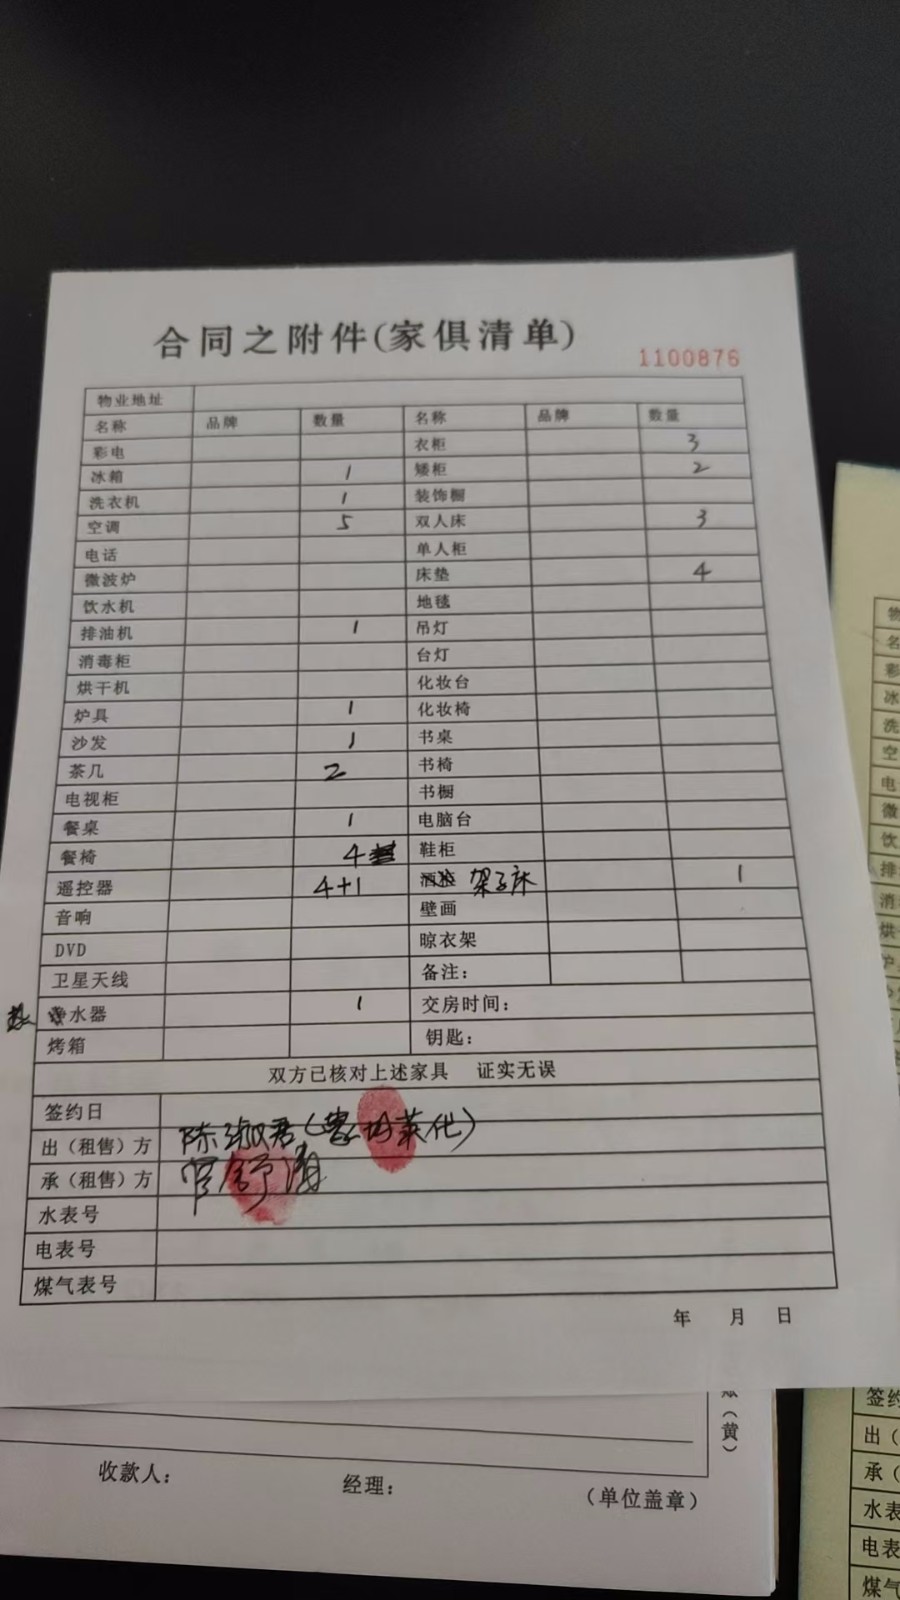 合同之附件(家俱清单)
1100876
物业地址
名称 品牌 数量 名称 品牌 数量
彩电 衣柜 3
冰箱 1 矮柜 2
洗衣机 1 装饰橱
空调 5 双人床 3
电话 单人柜
微波炉 床垫 4
饮水机 地毯
排油机 1 吊灯
消毒柜 台灯
烘干机 化妆台
炉具 1 化妆椅
沙发 1 书桌
茶几 2 书椅
电视柜 书橱
餐桌 1 电脑台
餐椅 4 鞋柜
遥控器 4+1 架子床 1
音响 壁画
DVD 晾衣架
卫星天线 备注：
热 水器 1 交房时间：
烤箱 钥匙：
双方已核对上述家具 证实无误
签约日
出（租售）方 陈淑君(
承（租售）方
水表号
电表号
煤气表号
年 月 日
（黄）
收款人： 经理： （单位盖章）
签约
出（
承（
水表
电表
煤气